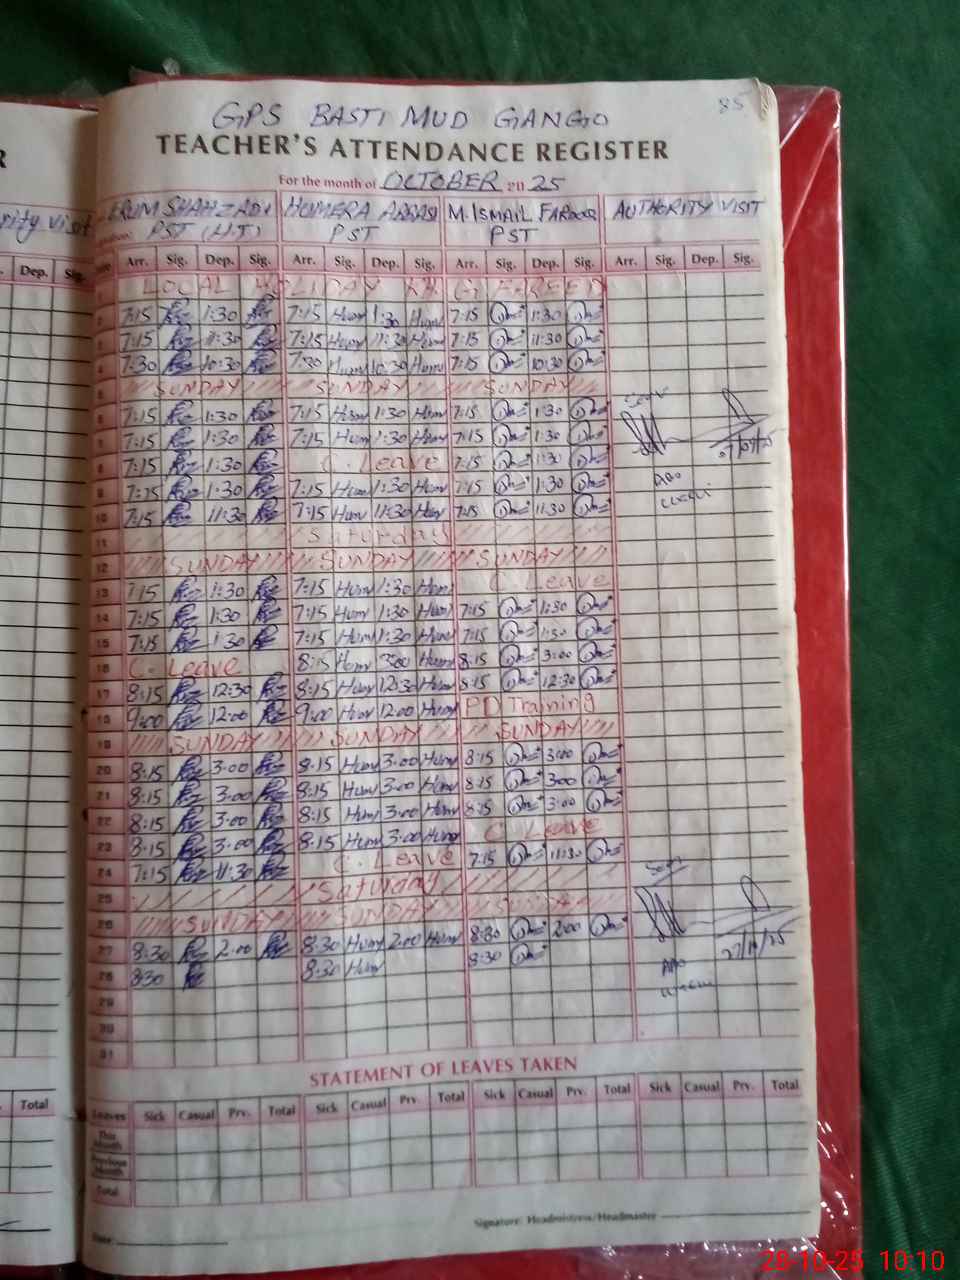 GPS BASTI MUD GANGO
85
TEACHER'S ATTENDANCE REGISTER
For the month of OCTOBER 2025
ERUM SHAHZADI HUMERA ABBASI M. ISMAIL FAROOQ AUTHORITY VISIT
PST (H.T) PST PST
Arr. Sig. Dep. Sig. Arr. Sig. Dep. Sig. Arr. Sig. Dep. Sig. Arr. Sig. Dep. Sig.
1 LOCAL HOLIDAY KH. G. FAREED
2 7:15 1:30 7:15 Hum 1:30 Hum 7:15 1:30
3 7:15 11:30 7:15 Hum 11:30 Hum 7:15 11:30
4 7:30 10:30 7:30 Hum 10:30 Hum 7:15 10:30
5 SUNDAY SUNDAY SUNDAY
6 7:15 1:30 7:15 Hum 1:30 Hum 7:15 1:30
7 7:15 1:30 7:15 Hum 1:30 Hum 7:15 1:30
8 7:15 1:30 C. Leave 7:15 1:30
9 7:15 1:30 7:15 Hum 1:30 Hum 7:15 1:30
10 7:15 11:30 7:15 Hum 11:30 Hum 7:15 11:30
11 Saturday
12 SUNDAY SUNDAY SUNDAY
13 7:15 1:30 7:15 Hum 1:30 Hum C. Leave
14 7:15 1:30 7:15 Hum 1:30 Hum 7:15 1:30
15 7:15 1:30 7:15 Hum 1:30 Hum 7:15 1:30
16 C. Leave 8:15 Hum 3:00 Hum 8:15 3:00
17 8:15 12:30 8:15 Hum 12:30 Hum 8:15 12:30
18 9:00 12:00 9:00 Hum 12:00 Hum PD Training
19 SUNDAY SUNDAY SUNDAY
20 8:15 3:00 8:15 Hum 3:00 Hum 8:15 3:00
21 8:15 3:00 8:15 Hum 3:00 Hum 8:15 3:00
22 8:15 3:00 8:15 Hum 3:00 Hum 8:15 3:00
23 8:15 3:00 8:15 Hum 3:00 Hum C. Leave
24 7:15 11:30 C. Leave 7:15 11:30
25 Saturday
26 SUNDAY SUNDAY SUNDAY
27 8:30 2:00 8:30 Hum 2:00 Hum 8:30 2:00
28 8:30 8:30 Hum 8:30
29
30
31
27/10/25
STATEMENT OF LEAVES TAKEN
Leaves Sick Casual Prv. Total Sick Casual Prv. Total Sick Casual Prv. Total Sick Casual Prv. Total
This Month
Previous Month
Total
Signature: Headmistress/Headmaster
Date:
R
rity visit
Dep. Sig.
Total
28-10-25 10:10